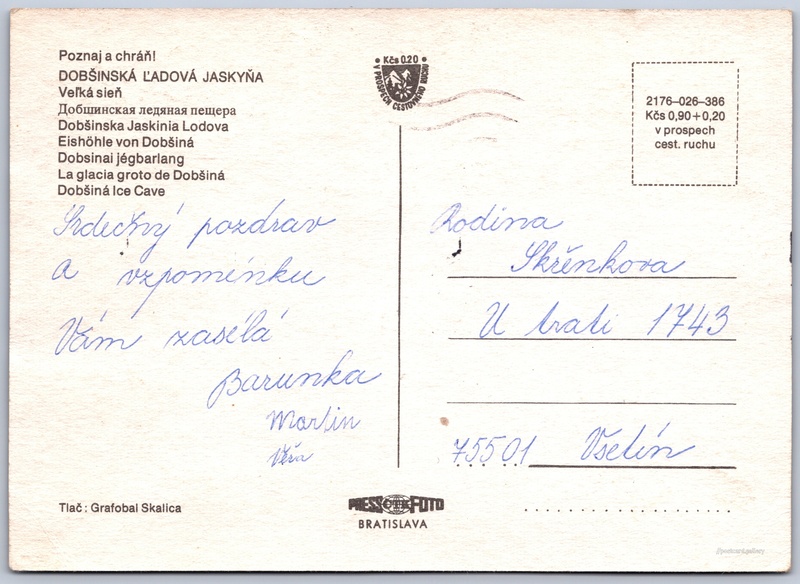 Poznaj a chráň!
DOBŠINSKÁ ĽADOVÁ JASKYŇA
Veľká sieň
Добшинская ледяная пещера
Dobšinska Jaskinia Lodova
Eishöhle von Dobšiná
Dobsinai jégbarlang
La glacia groto de Dobšiná
Dobšiná Ice Cave
Srdečný pozdrav
a vzpomínku
Vám zasílá
Barunka
Martin
Věra
Tlač: Grafobal Skalica
Kčs 0.20
V PROSPECH CESTOVNÉHO RUCHU
PRESSFOTO
BRATISLAVA
2176-026-386
Kčs 0,90+0,20
v prospech
cest. ruchu
Rodina
Skřěnkova
U trati 1743
75501 Vsetín